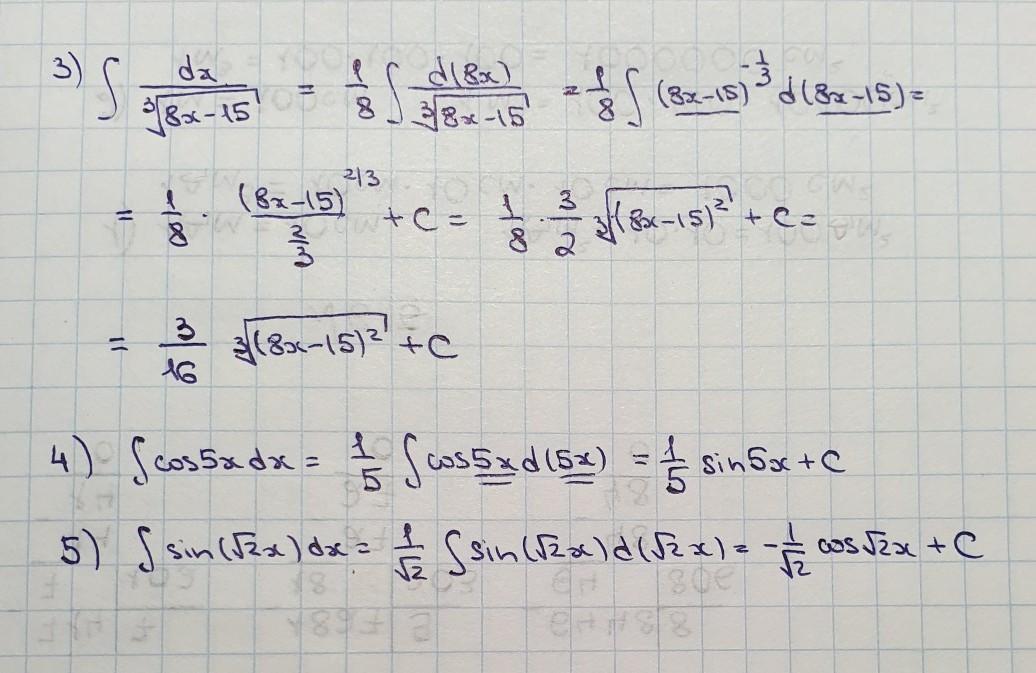 3) ∫ dx/∛(8x-15) = 1/8 ∫ d(8x)/∛(8x-15) = 1/8 ∫ (8x-15)^(-1/3) d(8x-15) =
= 1/8 · (8x-15)^(2/3)/(2/3) + C = 1/8 · 3/2 ∛((8x-15)²) + C =
= 3/16 ∛((8x-15)²) + C
4) ∫ cos5x dx = 1/5 ∫ cos5x d(5x) = 1/5 sin5x + C
5) ∫ sin(√2x) dx = 1/√2 ∫ sin(√2x) d(√2x) = -1/√2 cos√2x + C